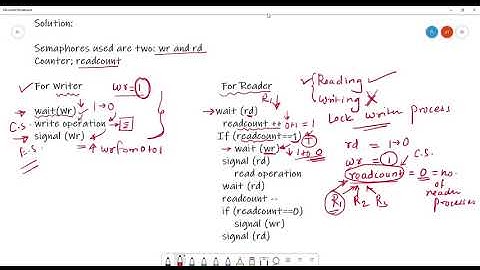 Solution:
Semaphores used are two: wr and rd
Counter; readcount
✓ For Writer wr=1
→ wait(wr) 1→0
C.S. → write operation
→ signal (wr) = wr from 0 to 1
E.S.
For Reader
R1
→ wait (rd)
readcount ++ 0+1 = 1
If (readcount==1)
→ wait (wr) 1 to 0
signal (rd)
read operation
wait (rd)
readcount --
if (readcount==0)
signal (wr)
signal (rd)
Reading ✓
Writing ✗
Lock writer process
rd = 1→0
wr = 1 C.S.
readcount = 0 = no. of reader processes
R1 R2 R3